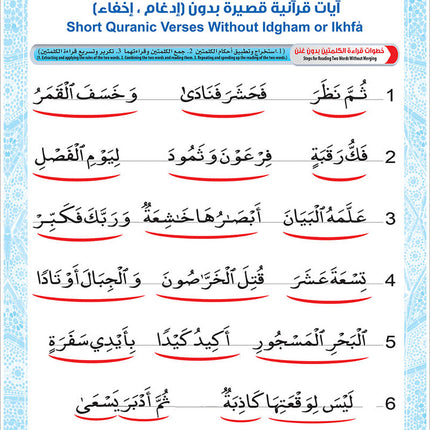 آيات قرآنية قصيرة بدون (إدغام ، إخفاء)
Short Quranic Verses Without Idgham or Ikhfâ
خطوات قراءة الكلمتين بدون غنن (1. استخراج وتطبيق أحكام الكلمتين 2. جمع الكلمتين وقراءتهما 3. تكرير وتسريع قراءة الكلمتين)
Steps for Reading Two Words Without Merging (1. Extracting and applying the rules of the two words. 2. Combining the two words and reading them. 3. Repeating and speeding up the reading of the two words.)
1 ثُمَّ نَظَرَ فَحَشَرَ فَنَادَىٰ وَخَسَفَ ٱلْقَمَرُ
2 فَكُّ رَقَبَةٍ فِرْعَوْنَ وَثَمُودَ لِيَوْمِ ٱلْفَصْلِ
3 عَلَّمَهُ ٱلْبَيَانَ أَبْصَٰرُهَا خَٰشِعَةٌ وَرَبَّكَ فَكَبِّرْ
4 تِسْعَةَ عَشَرَ قُتِلَ ٱلْخَرَّٰصُونَ وَٱلْجِبَالَ أَوْتَادًا
5 ٱلْبَحْرِ ٱلْمَسْجُورِ أَكِيدُ كَيْدًا بِأَيْدِي سَفَرَةٍ
6 لَيْسَ لِوَقْعَتِهَا كَاذِبَةٌ ثُمَّ أَدْبَرَ يَسْعَىٰ